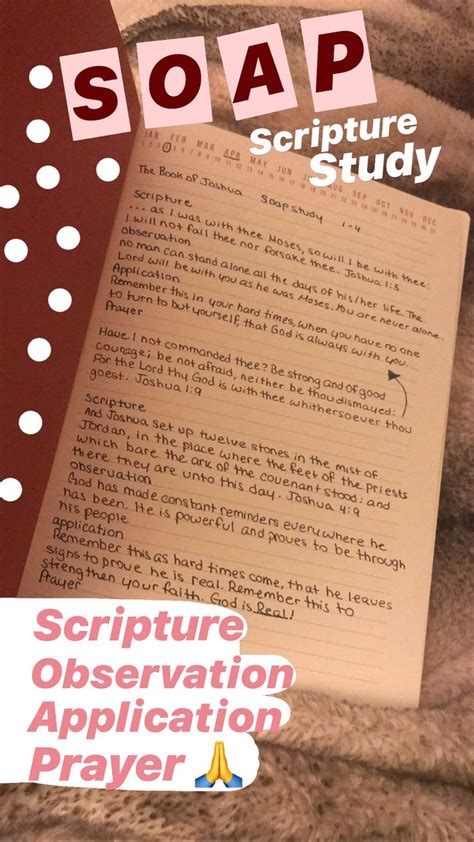 SOAP
Scripture
Study
JAN FEB MAR APR MAY JUN AUG SEP OCT NOV DEC
1 2 3 4 5 6 7 8 9 10 11 12 13 14 15 16 17 18 19 20 21 22 23 24 25 26 27 28 29 30 31
The Book of Joshua Soap study 1-4
Scripture
... as I was with thee Moses, so will I be with thee:
I will not fail thee nor forsake thee. Joshua 1:5
observation
no man can stand alone all the days of his/her life. The
Lord will be with you as he was Moses. You are never alone.
Application
Remember this in your hard times, when you have no one
to turn to but yourself, that God is always with you.
Prayer
Have I not commanded thee? Be strong and of good
courage; be not afraid, neither be thou dismayed:
For the Lord thy God is with thee whithersoever thou
goest. Joshua 1:9
Scripture
And Joshua set up twelve stones in the mist of
Jordan, in the place where the feet of the priests
which bare the ark of the covenant stood: and
there they are unto this day. Joshua 4:9
observation
God has made constant reminders everywhere he
has been. He is powerful and proves to be through
his people
application
Remember this as hard times come, that he leaves
signs to prove he is real. Remember this to
strengthen your faith. God is Real!
Prayer
Scripture
Observation
Application
Prayer 🙏